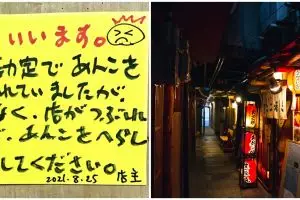 いいます。
勘定であんこを
れていましたが、
なく、店がつぶれ
で、あんこをへらし
してください。
2021.8.25 店主